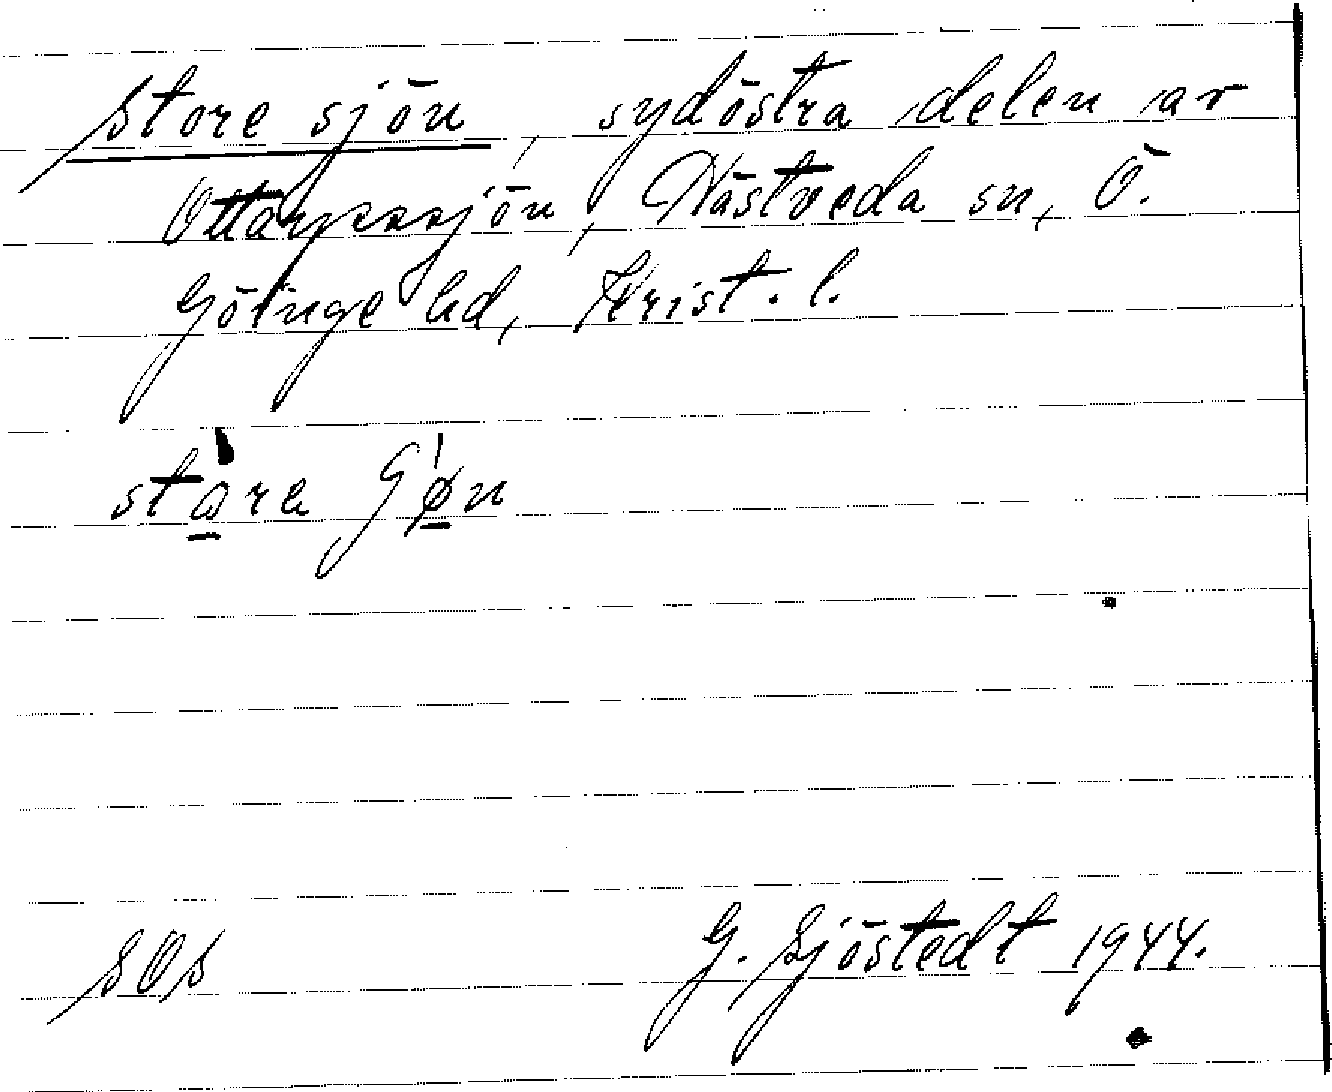 Store sjön, sydöstra delen av
Ottarpssjön, Västveda sn, Ö.
Göinge hd, Krist. l.
SOS G. Sjöstedt 1944.